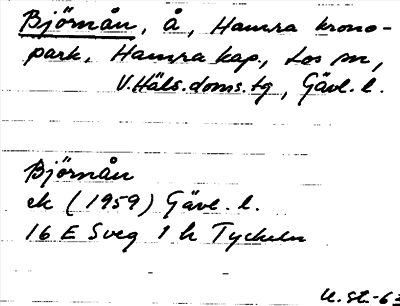 Björnån, å, Hamra krono-
park, Hamra kap., Los sn,
V. Häls. doms. tg, Gävl. l.
Björnån
ek (1959) Gävl. l.
16 E Sveg 1 h Tyckeln
U. St. -63